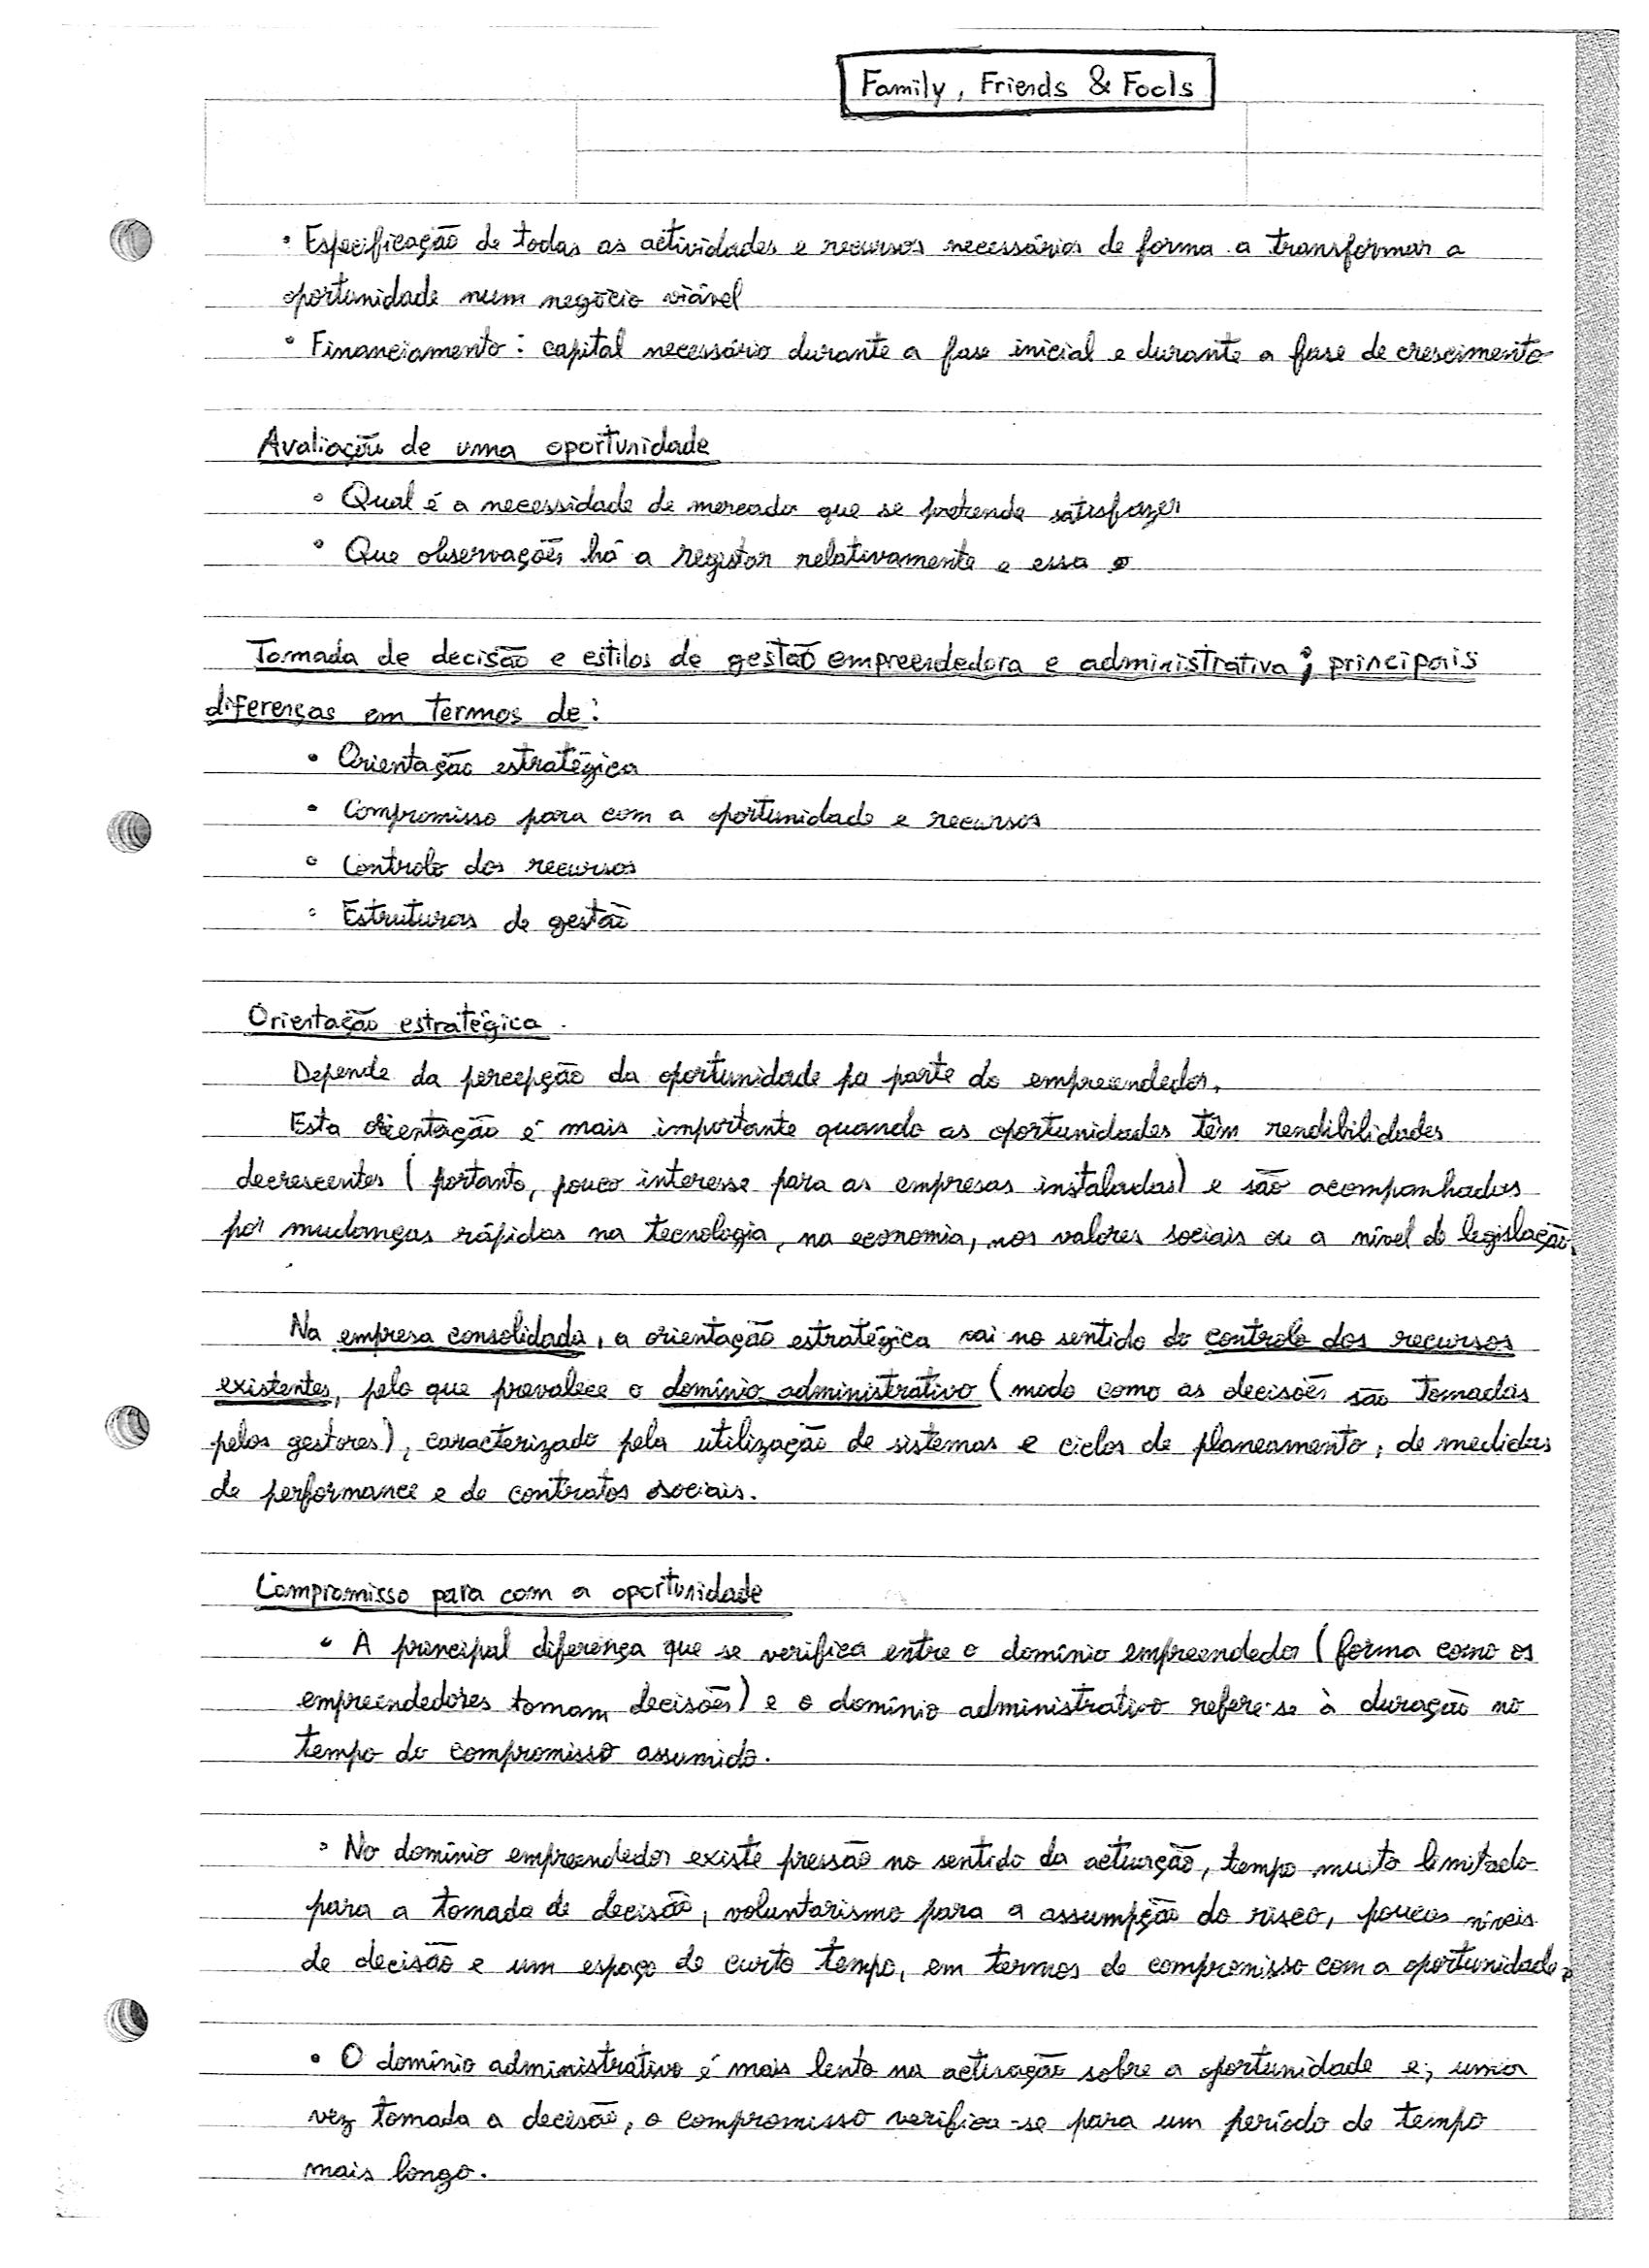 Family, Friends & Fools
• Especificação de todas as actividades e recursos necessários de forma a transformar a
oportunidade num negócio viável
• Financiamento: capital necessário durante a fase inicial e durante a fase de crescimento
Avaliação de uma oportunidade
• Qual é a necessidade de mercado que se pretende satisfazer
• Que observações há a registar relativamente a essa o
Tomada de decisão e estilos de gestão empreendedora e administrativa; principais
diferenças em termos de:
• Orientação estratégica
• Compromisso para com a oportunidade e recursos
• Controlo dos recursos
• Estruturas de gestão
Orientação estratégica.
Depende da percepção da oportunidade po parte do empreendedor.
Esta orientação é mais importante quando as oportunidades têm rendibilidades
decrescentes (portanto, pouco interesse para as empresas instaladas) e são acompanhadas
por mudanças rápidas na tecnologia, na economia, nos valores sociais ou a nível de legislação.
Na empresa consolidada, a orientação estratégica vai no sentido do controlo dos recursos
existentes, pelo que prevalece o domínio administrativo (modo como as decisões são tomadas
pelos gestores), caracterizado pela utilização de sistemas e ciclos de planeamento, de medidas
de performance e de contratos sociais.
Compromisso para com a oportunidade
• A principal diferença que se verifica entre o domínio empreendedor (forma como os
empreendedores tomam decisões) e o domínio administrativo refere-se à duração no
tempo do compromisso assumido.
• No domínio empreendedor existe pressão no sentido da actuação, tempo muito limitado
para a tomada de decisão, voluntarismo para a assumpção do risco, poucos níveis
de decisão e um espaço de curto tempo, em termos de compromisso com a oportunidade.
• O domínio administrativo é mais lento na actuação sobre a oportunidade e, uma
vez tomada a decisão, o compromisso verifica-se para um período de tempo
mais longo.